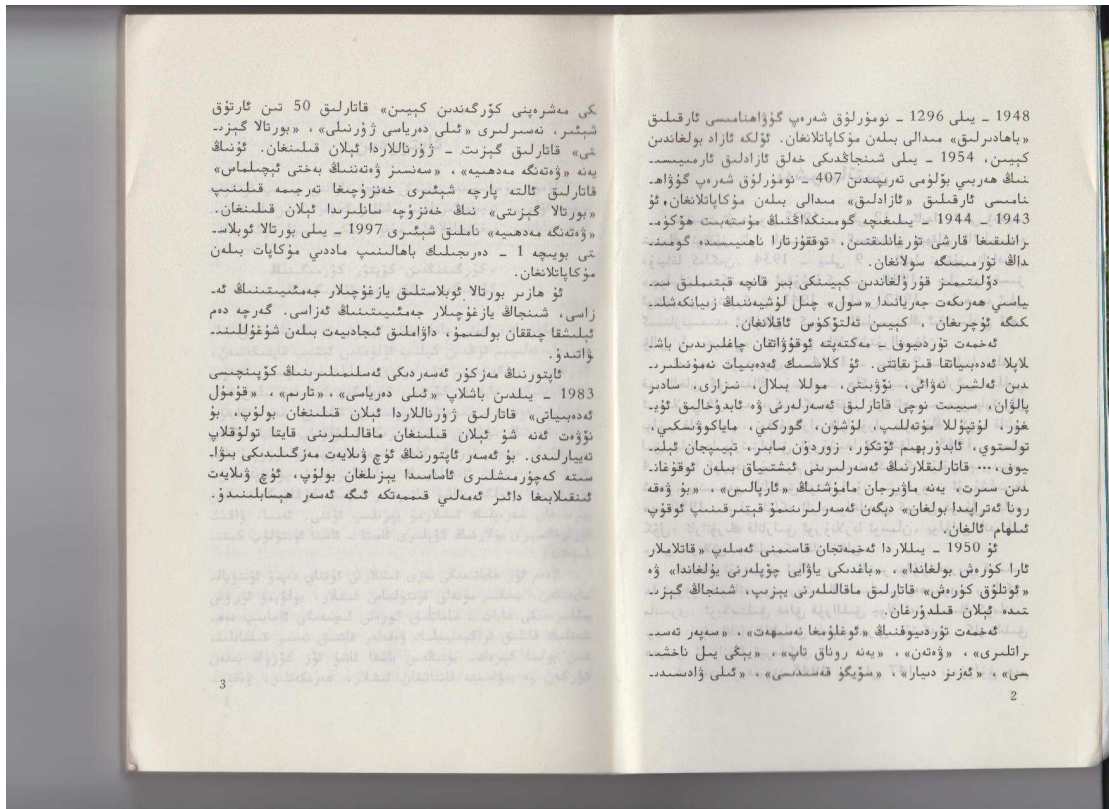 1948 ـ يىلى 1296 ـ نومۇرلۇق شەرەپ گۇۋاھنامىسى ئارقىلىق
«باھادىرلىق» مىدالى بىلەن مۇكاپاتلانغان. ئۆلكە ئازاد بولغاندىن
كېيىن، 1954 ـ يىلى شىنجاڭدىكى خەلق ئازادلىق ئارمىيىسىـ
نىڭ ھەربىي بۆلۈمى تەرىپىدىن 407 ـ نومۇرلۇق شەرەپ گۇۋاھـ
نامىسى ئارقىلىق «ئازادلىق» مىدالى بىلەن مۇكاپاتلانغان. ئۇ
1943 ـ 1944 ـ يىلىغىچە گومىنداڭنىڭ مۇستەبىت ھۆكۈمـ
رانلىقىغا قارشى تۇرغانلىقتىن، توققۇزتارا ناھىيىسىدە گومىنـ
داڭ تۈرمىسىگە سولانغان.
دۆلىتىمىز قۇرۇلغاندىن كېيىنكى بىر قانچە قېتىملىق سىـ
ياسىي ھەرىكەت جەريانىدا «سول» چىل لۇشيەننىڭ زىيانكەشلىـ
كىگە ئۇچرىغان، كېيىن ئەلتۆكۈس ئاقلانغان.
ئەخمەت تۇردىيوف ـ مەكتەپتە ئوقۇۋاتقان چاغلىرىدىن باشـ
لاپلا ئەدەبىياتقا قىزىقاتتى. ئۇ كلاسسىك ئەدەبىيات نەمۇنىلىرىـ
دىن ئەلشىر نەۋائى، نۆۋبىتى، موللا بىلال، نىزارى، سادىر
پالۋان، سىيىت نوچى قاتارلىق ئەسەرلەرنى ۋە ئابدۇخالىق ئۇيـ
غۇر، لۇتپۇللا مۇتەللىپ، لۇشۈن، گوركىي، ماياكوۋسكىي،
تولستوي، ئابدۇرېھىم ئۆتكۈر، زوردۇن سابىر، تېيىپجان ئېلىـ
يوف،... قاتارلىقلارنىڭ ئەسەرلىرىنى ئىشتىياق بىلەن ئوقۇغانـ
دىن سىرت، يەنە ماۋىرجان مامۇشنىڭ «ئارپالىس»، «بۇ ۋەقە
رونا ئەتراپىدا بولغان» دېگەن ئەسەرلىرىنىمۇ قېتىرقىنىپ ئوقۇپ
ئىلھام ئالغان.
ئۇ 1950 ـ يىللاردا ئەخمەتجان قاسىمنى ئەسلەپ «قاتلاملار
ئارا كۈرەش بولغاندا»، «باغدىكى ياۋايى چۆپلەرنى يۇلغاندا» ۋە
«ئوتلۇق كۈرەش» قاتارلىق ماقالىلەرنى يېزىپ، شىنجاڭ گېزىـ
تىدە ئېلان قىلدۇرغان.
ئەخمەت تۇردىيوفنىڭ «ئوغلۇمغا نەسىھەت»، «سەپەر تەسىـ
راتلىرى»، «ۋەتەن»، «يەنە روناق تاپ»، «يېڭى يىل ناخشىـ
سى»، «ئەزىز دىيار»، «سۆيگۈ قەسىدىسى»، «ئىلى ۋادىسىدىـ
2
كى مەشرەپنى كۆرگەندىن كېيىن» قاتارلىق 50 تىن ئارتۇق
شېئىر، نەسىرلىرى «ئىلى دەرياسى ژۇرنىلى»، «بورتالا گېزىـ
تى» قاتارلىق گېزىت ـ ژۇرناللاردا ئېلان قىلىنغان. ئۇنىڭ
يەنە «ۋەتەنگە مەدھىيە»، «سەنسىز ۋەتەننىڭ بەختى ئېچىلماس»
قاتارلىق ئالتە پارچە شېئىرى خەنزۇچىغا تەرجىمە قىلىنىپ
«بورتالا گېزىتى» نىڭ خەنزۇچە سانلىرىدا ئېلان قىلىنغان.
«ۋەتەنگە مەدھىيە» ناملىق شېئىرى 1997 ـ يىلى بورتالا ئوبلاسـ
تى بويىچە 1 ـ دەرىجىلىك باھالىنىپ ماددىي مۇكاپات بىلەن
مۇكاپاتلانغان.
ئۇ ھازىر بورتالا ئوبلاستلىق يازغۇچىلار جەمئىيىتىنىڭ ئەـ
زاسى، شىنجاڭ يازغۇچىلار جەمئىيىتىنىڭ ئەزاسى. گەرچە دەم
ئېلىشقا چىققان بولسىمۇ، داۋاملىق ئىجادىيەت بىلەن شۇغۇللىنىـ
ۋاتىدۇ.
ئاپتورنىڭ مەزكۇر ئەسەردىكى ئەسلىمىلىرىنىڭ كۆپىنچىسى
1983 ـ يىلدىن باشلاپ «ئىلى دەرياسى»، «تارىم»، «قۇمۇل
ئەدەبىياتى» قاتارلىق ژۇرناللاردا ئېلان قىلىنغان بولۇپ، بۇ
نۆۋەت ئەنە شۇ ئېلان قىلىنغان ماقالىلىرىنى قايتا تولۇقلاپ
تەييارلىدى. بۇ ئەسەر ئاپتورنىڭ ئۈچ ۋىلايەت مەزگىلىدىكى بىۋاـ
سىتە كەچۈرمىشلىرى ئاساسىدا يېزىلغان بولۇپ، ئۈچ ۋىلايەت
ئىنقىلابىغا دائىر ئەمەلىي قىممەتكە ئىگە ئەسەر ھېسابلىنىدۇ.
3